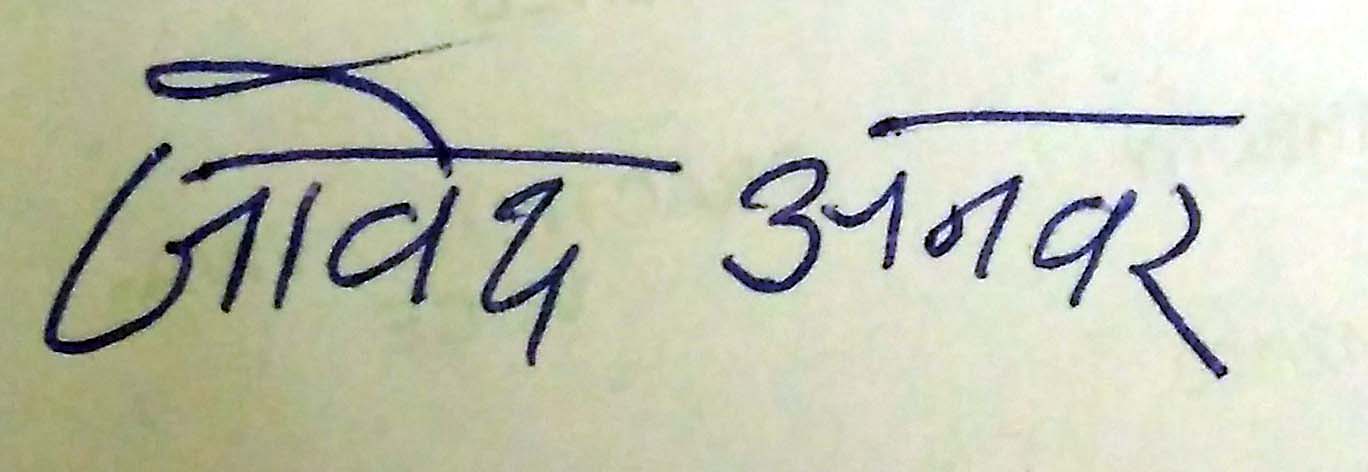 जावेद अनवर